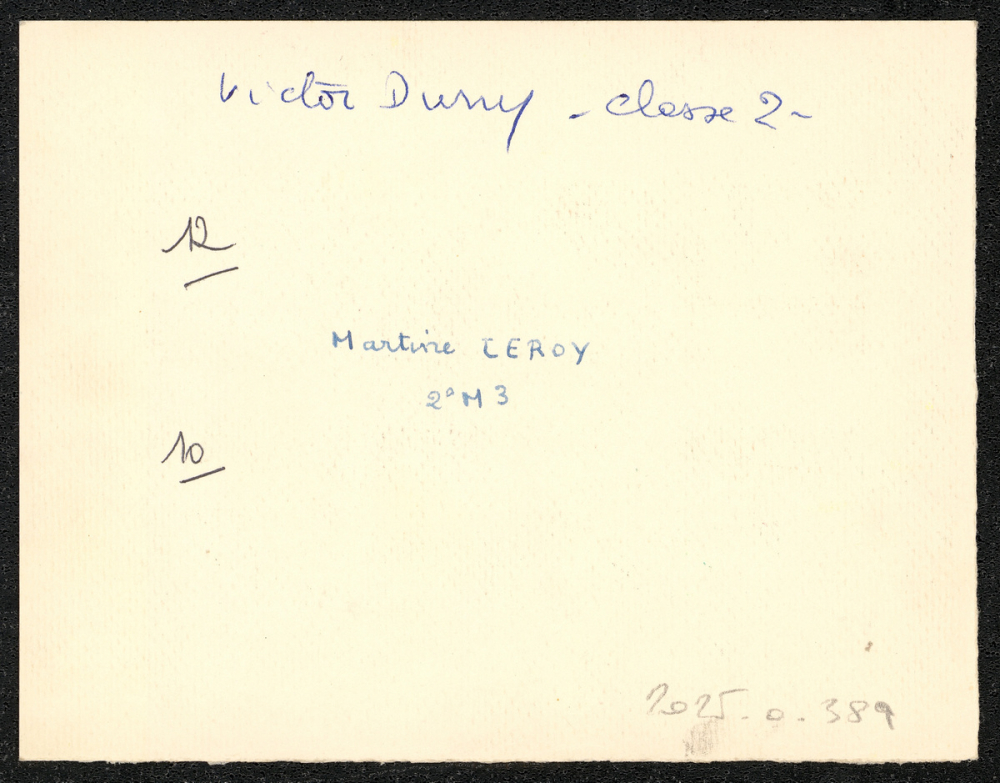 Victor Duruy - Classe 2 -
12
Martine LEROY
2°M3
10
2025.0.389